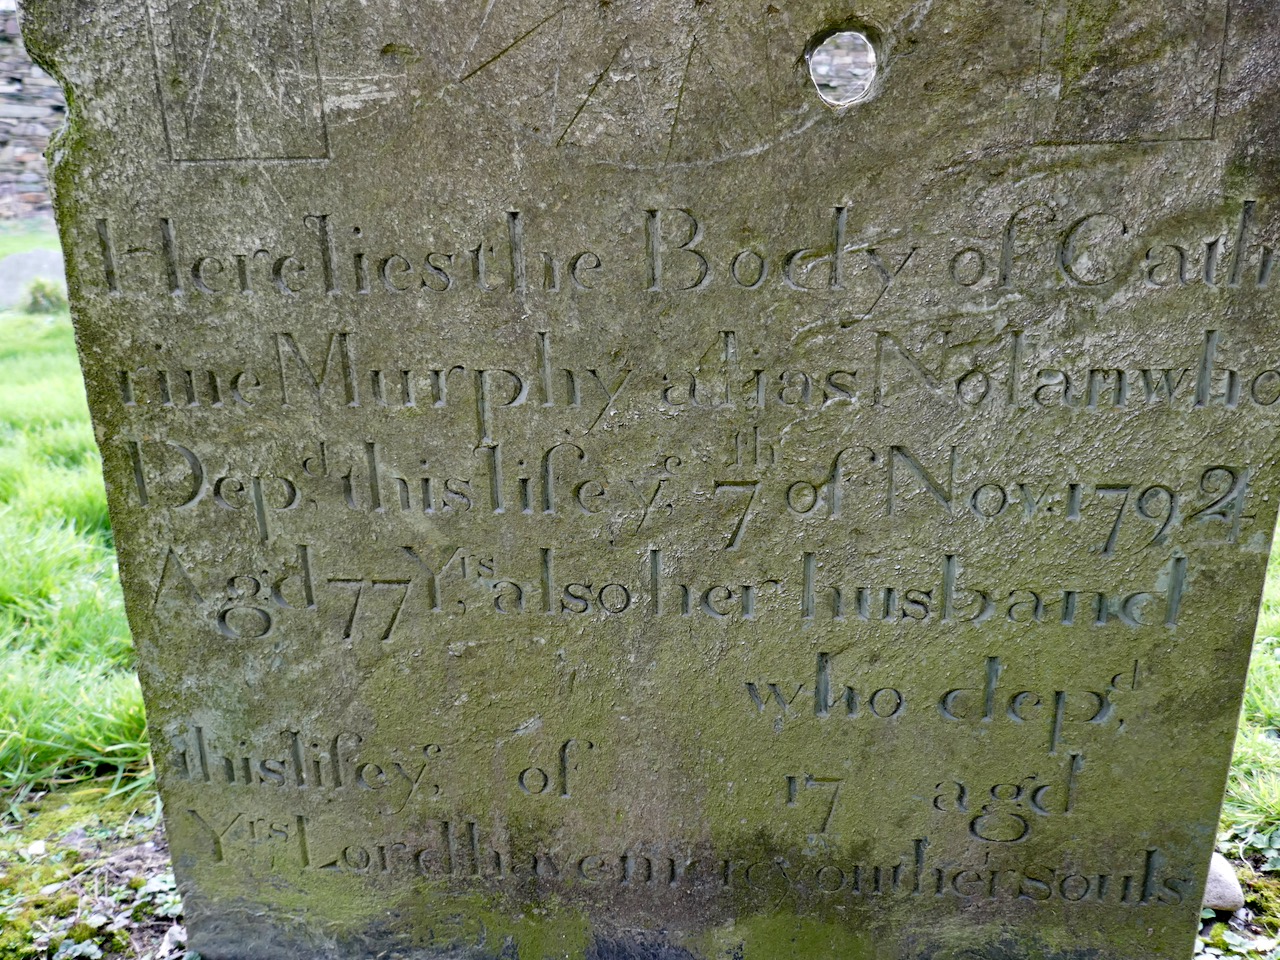 Here lies the Body of Cath
rine Murphy alias Nolan who
Dep.ᵈ this life yᵉ, 7ᵗʰ of Nov.ʳ 1792
Agd 77 Yʳˢ, also her husband
who depᵈ,
this life yᵉ, of 17 agd
Yʳˢ Lord have mercy on their souls